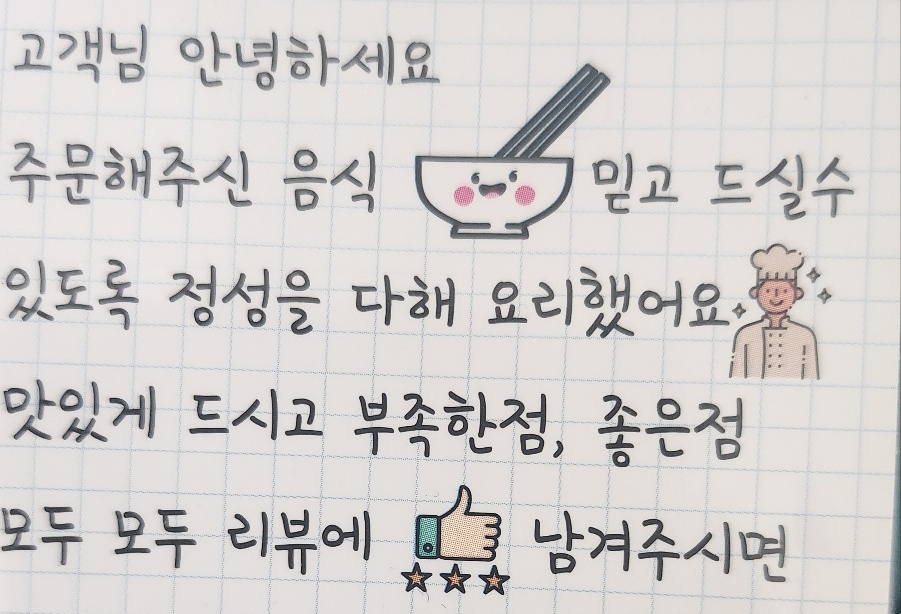 고객님 안녕하세요
주문해주신 음식 믿고 드실수
있도록 정성을 다해 요리했어요
맛있게 드시고 부족한점, 좋은점
모두 모두 리뷰에 남겨주시면